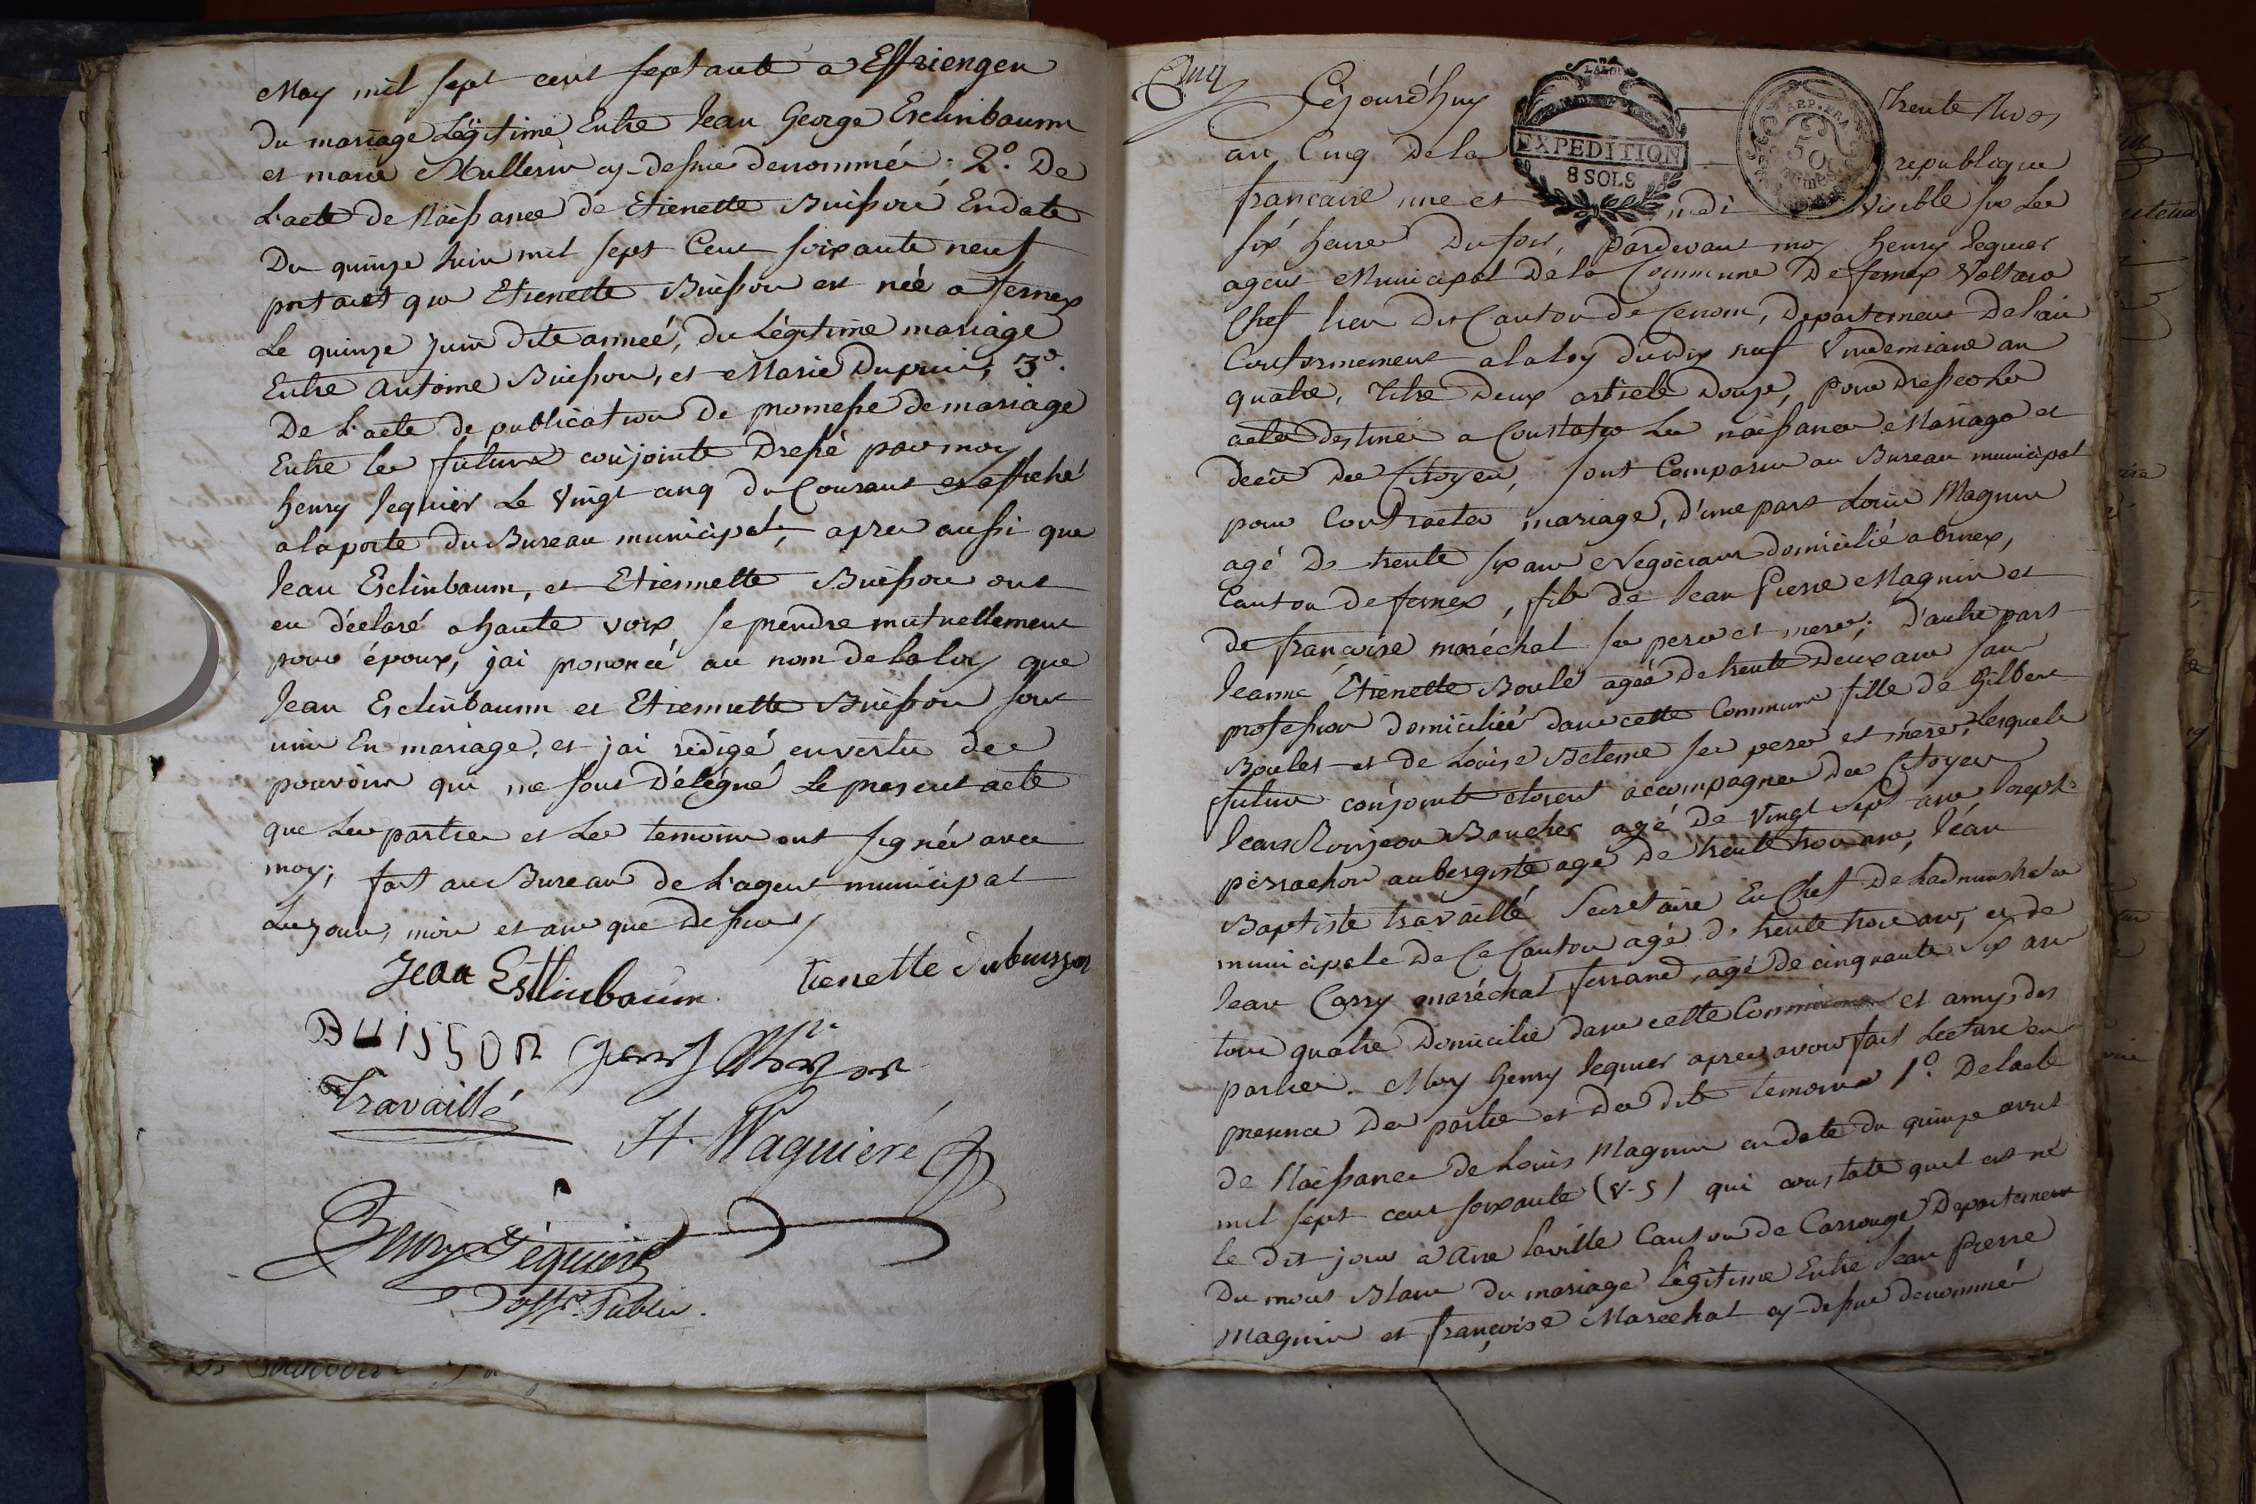 May mil sept cent septante a Effriengen
Du mariage Légitime Entre Jean George Esclinbaum
et marie Mullerin cy-dessus denommés; 2.º De
L'acte de Naissance de Etienette Buisson En date
Du quinze Juin mil sept Cent soixante neuf
portant que Etienette Buisson est née a fernex
Le quinze juin dite année, du Légitime mariage
Entre Antoine Buisson, et Marie Dupuis, 3º.
De L'acte de publication de promesse de mariage
Entre les futurs conjoints Dressé par moy
henry Jequier Le Vingt cinq du Courant et affiché
a la porte du Bureau municipal, apres aussi que
Jean Esclinbaum, et Etiennette Buisson ont
eu déclaré a haute voix se prendre mutuellement
pour époux, jai prononcé au nom de la loy que
Jean Esclinbaum et Etiennette Buisson sont
unis En mariage, et jai rédigé en vertu des
pouvoirs qui me sont Délégué Le present acte
que Les parties et Les temoins ont signés avec
moy; fait au Bureau de L'agent municipal
Les jour, mois et an que Dessus
Jean Estlinbaum. tienette dubuisson
BUISSON
Travaillé
H. Wagnieré
Henry Jéquier
off.er Public.
Cinq
Cejourd'huy trente Nivos
EXPEDITION
8 SOLS
50
an Cinq De la republique
francaise une et indivisible sur Les
six heures Du soir, pardevant moy henry Jequier
agent Municipal De la Commune De fernex Voltaire
Chef lieu Du Canton de Cenom, Departement De l'ain
Conformement a la loy du dix neuf Vendemiaire an
quatre, titre Deux article Douze, pour Dresser les
actes destinés a Constater Les naissances Mariages et
décès des Citoyens, sont Comparus au Bureau municipal
pour Contracter mariage, d'une part Louis Magnin
agé De trente six ans Negociant domicilié a ornex,
Canton de fernex, fils de Jean Pierre Magnin et
de françoise maréchal ses pere et mere; D'autre part
Jeanne Etienette Boulé agée De trente Deux ans sans
profession domiciliée dans cette Commune fille de Gilbert
Boulet et de Louise ses pere et mère, Lesquels
futurs conjoints etoient accompagnés des Citoyens
Jean Boucher agé De Vingt Sept ans Joseph
perrachon aubergiste agé de trente trois ans, Jean
Baptiste travaillé Secretaire En Chef De Ladministration
municipale De Ce Canton agé De trente trois ans, et de
Jean Carry maréchal ferrand, agé De cinquante Six ans
tous quatre Domicilié dans cette Commune et amys des
parties. Moy henry Jequier apres avoir fait Lecture en
presence Des parties et Des dits temoins 1º. De lacte
de Naissance de Louis Magnin en date du quinze avril
mil sept cent soixante (V-S) qui constate quil est né
le dit jour à Aire la ville Canton de Carrouge Departement
Du mont Blanc du mariage légitime Entre Jean Pierre
Magnin et françoise Marechal cy-dessus denommés